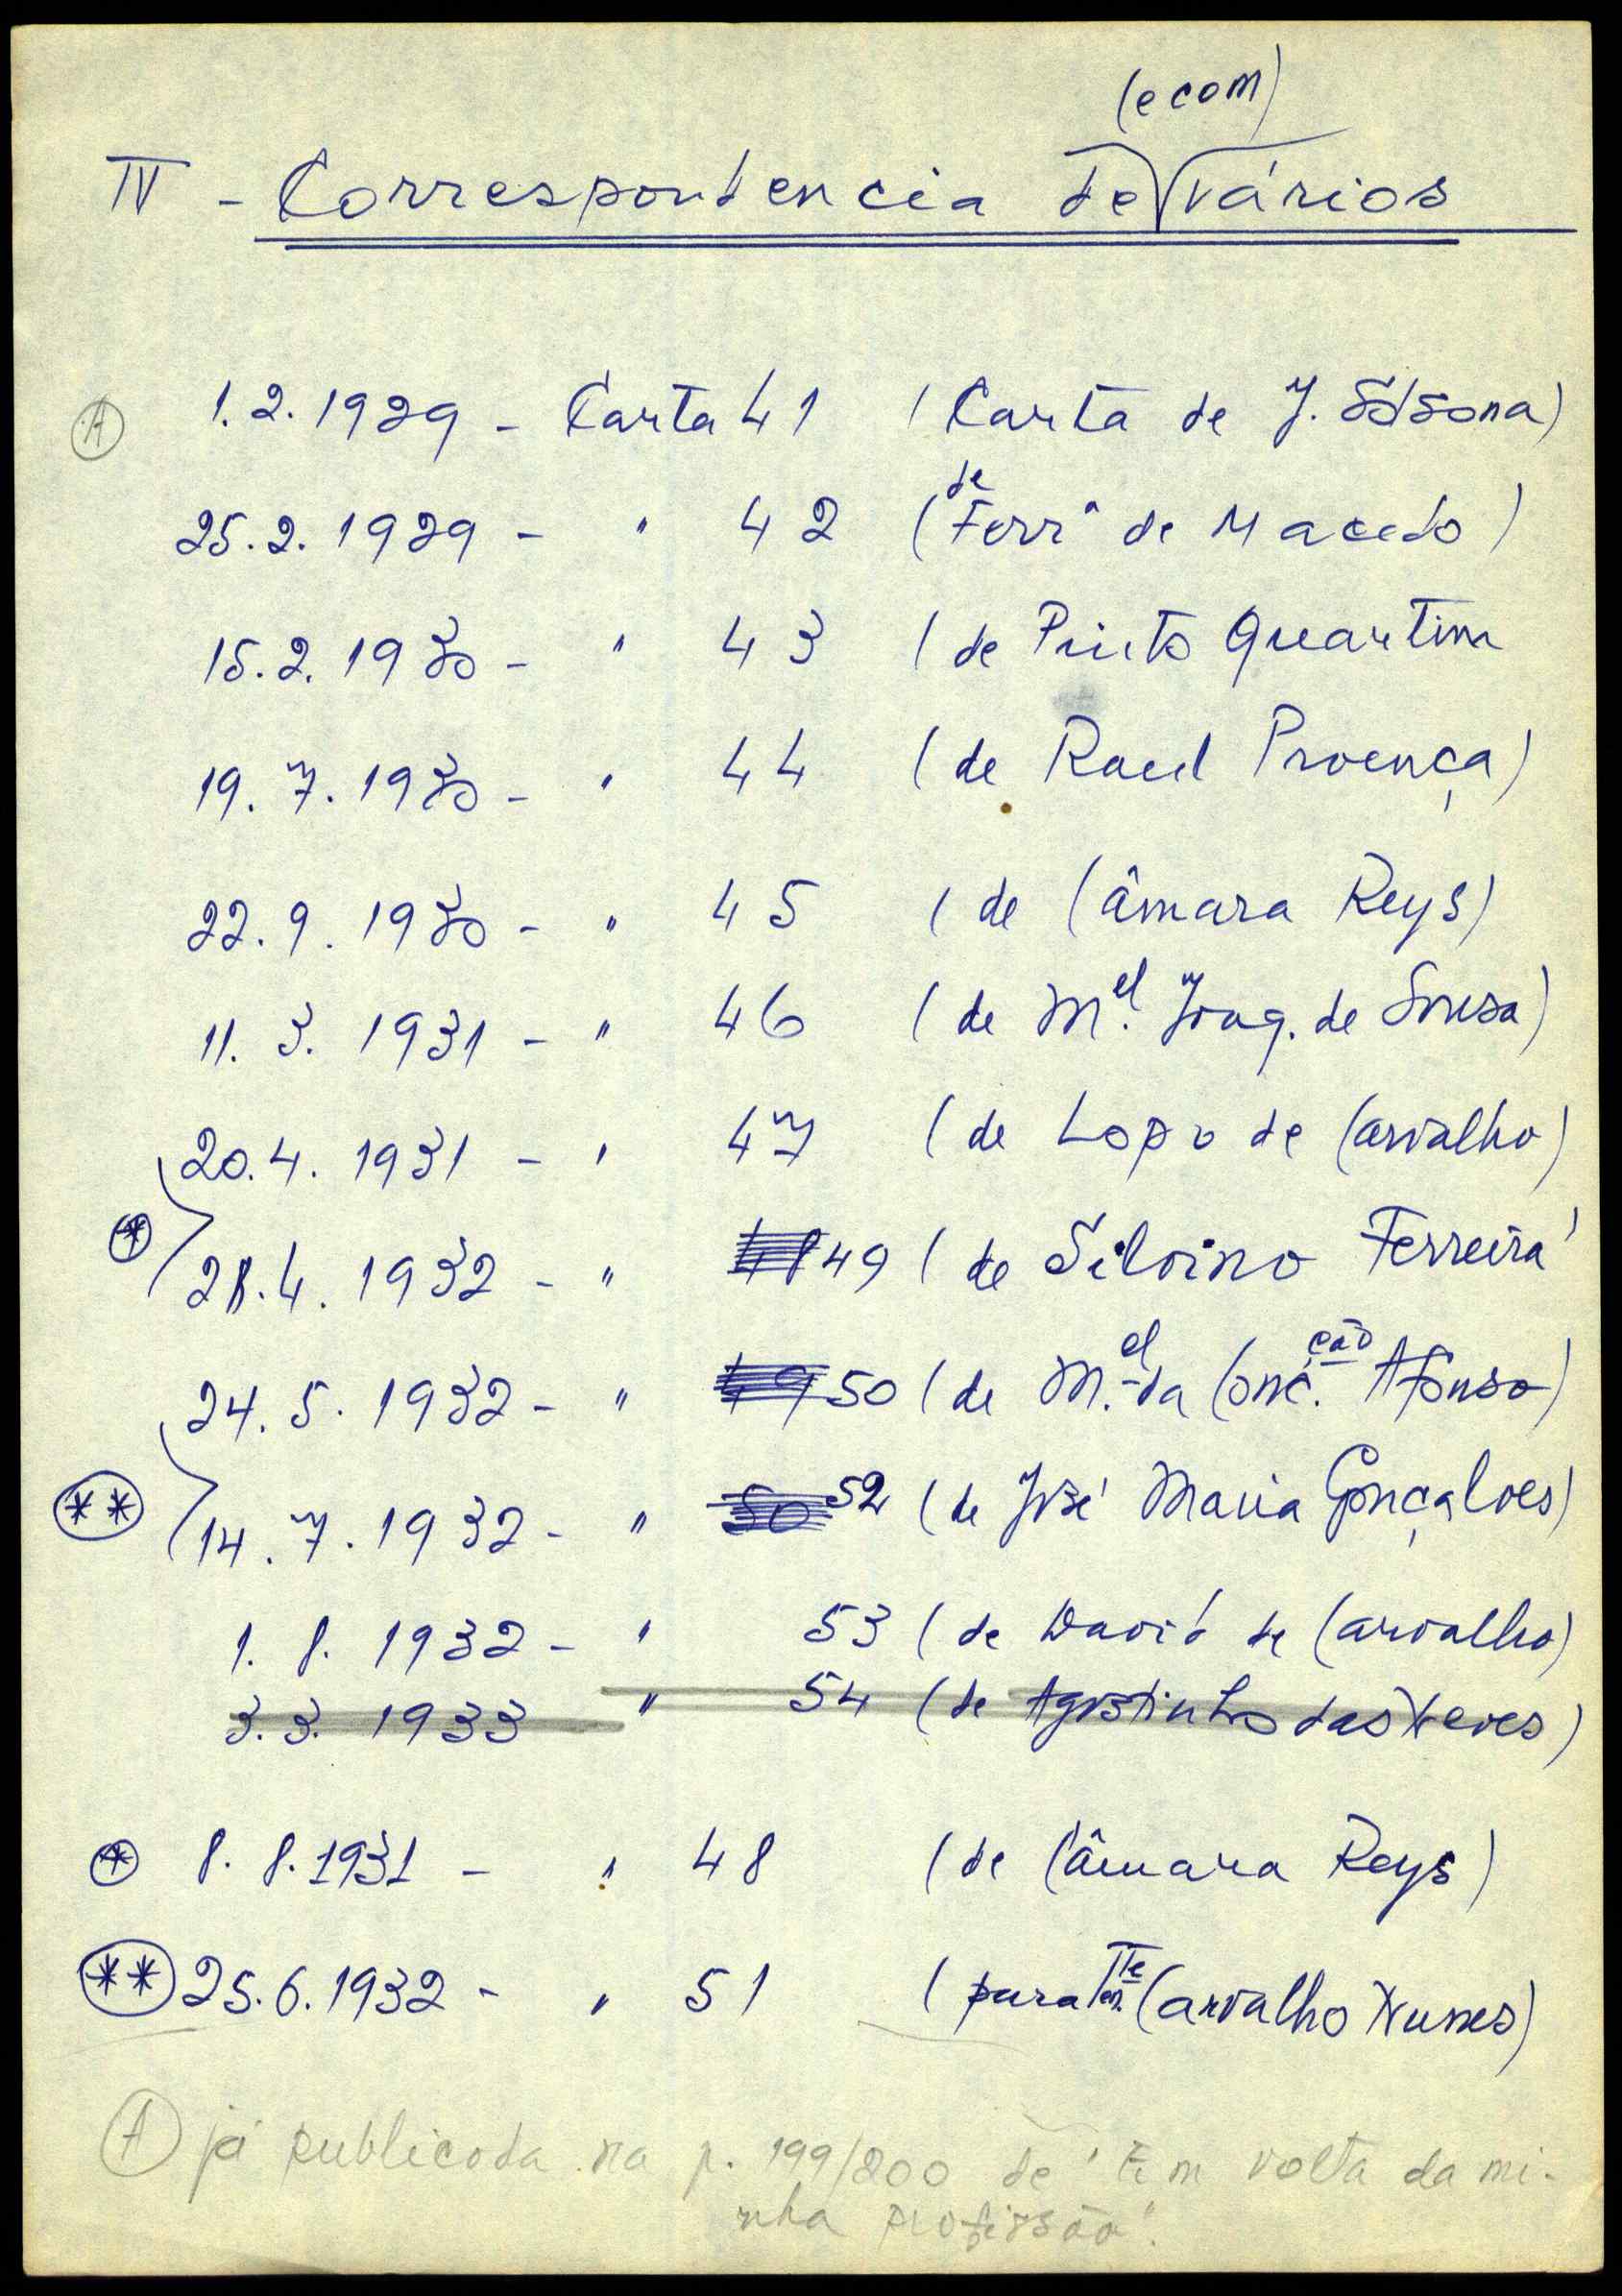 (e com)
IV - Correspondencia de vários
(A) 1.2.1929 - Carta 41 (Carta de J. Solsona)
25.2.1929 - " 42 (de Ferrª de Macedo)
15.2.1930 - " 43 (de Pinto Quartim
19.7.1930 - " 44 (de Raul Proença)
22.9.1930 - " 45 (de Câmara Reys)
11.3.1931 - " 46 (de M.el Joaq. de Sousa)
20.4.1931 - " 47 (de Lopo de Carvalho)
(*) 28.4.1932 - " 48 49 (de Silvino Ferreira)
24.5.1932 - " 49 50 (de M.el da Conc.ção Afonso)
(**) 14.7.1932 - " 50 52 (de José Maria Gonçalves)
1.8.1932 - " 53 (de David de Carvalho)
3.3.1933 " 54 (de Agostinho das Neves)
(*) 8.8.1931 - " 48 (de Câmara Reys)
(**) 25.6.1932 - " 51 (para Carvalho Nunes)
(A) já publicada na p. 199/200 de "Em volta da mi-
nha profissão".